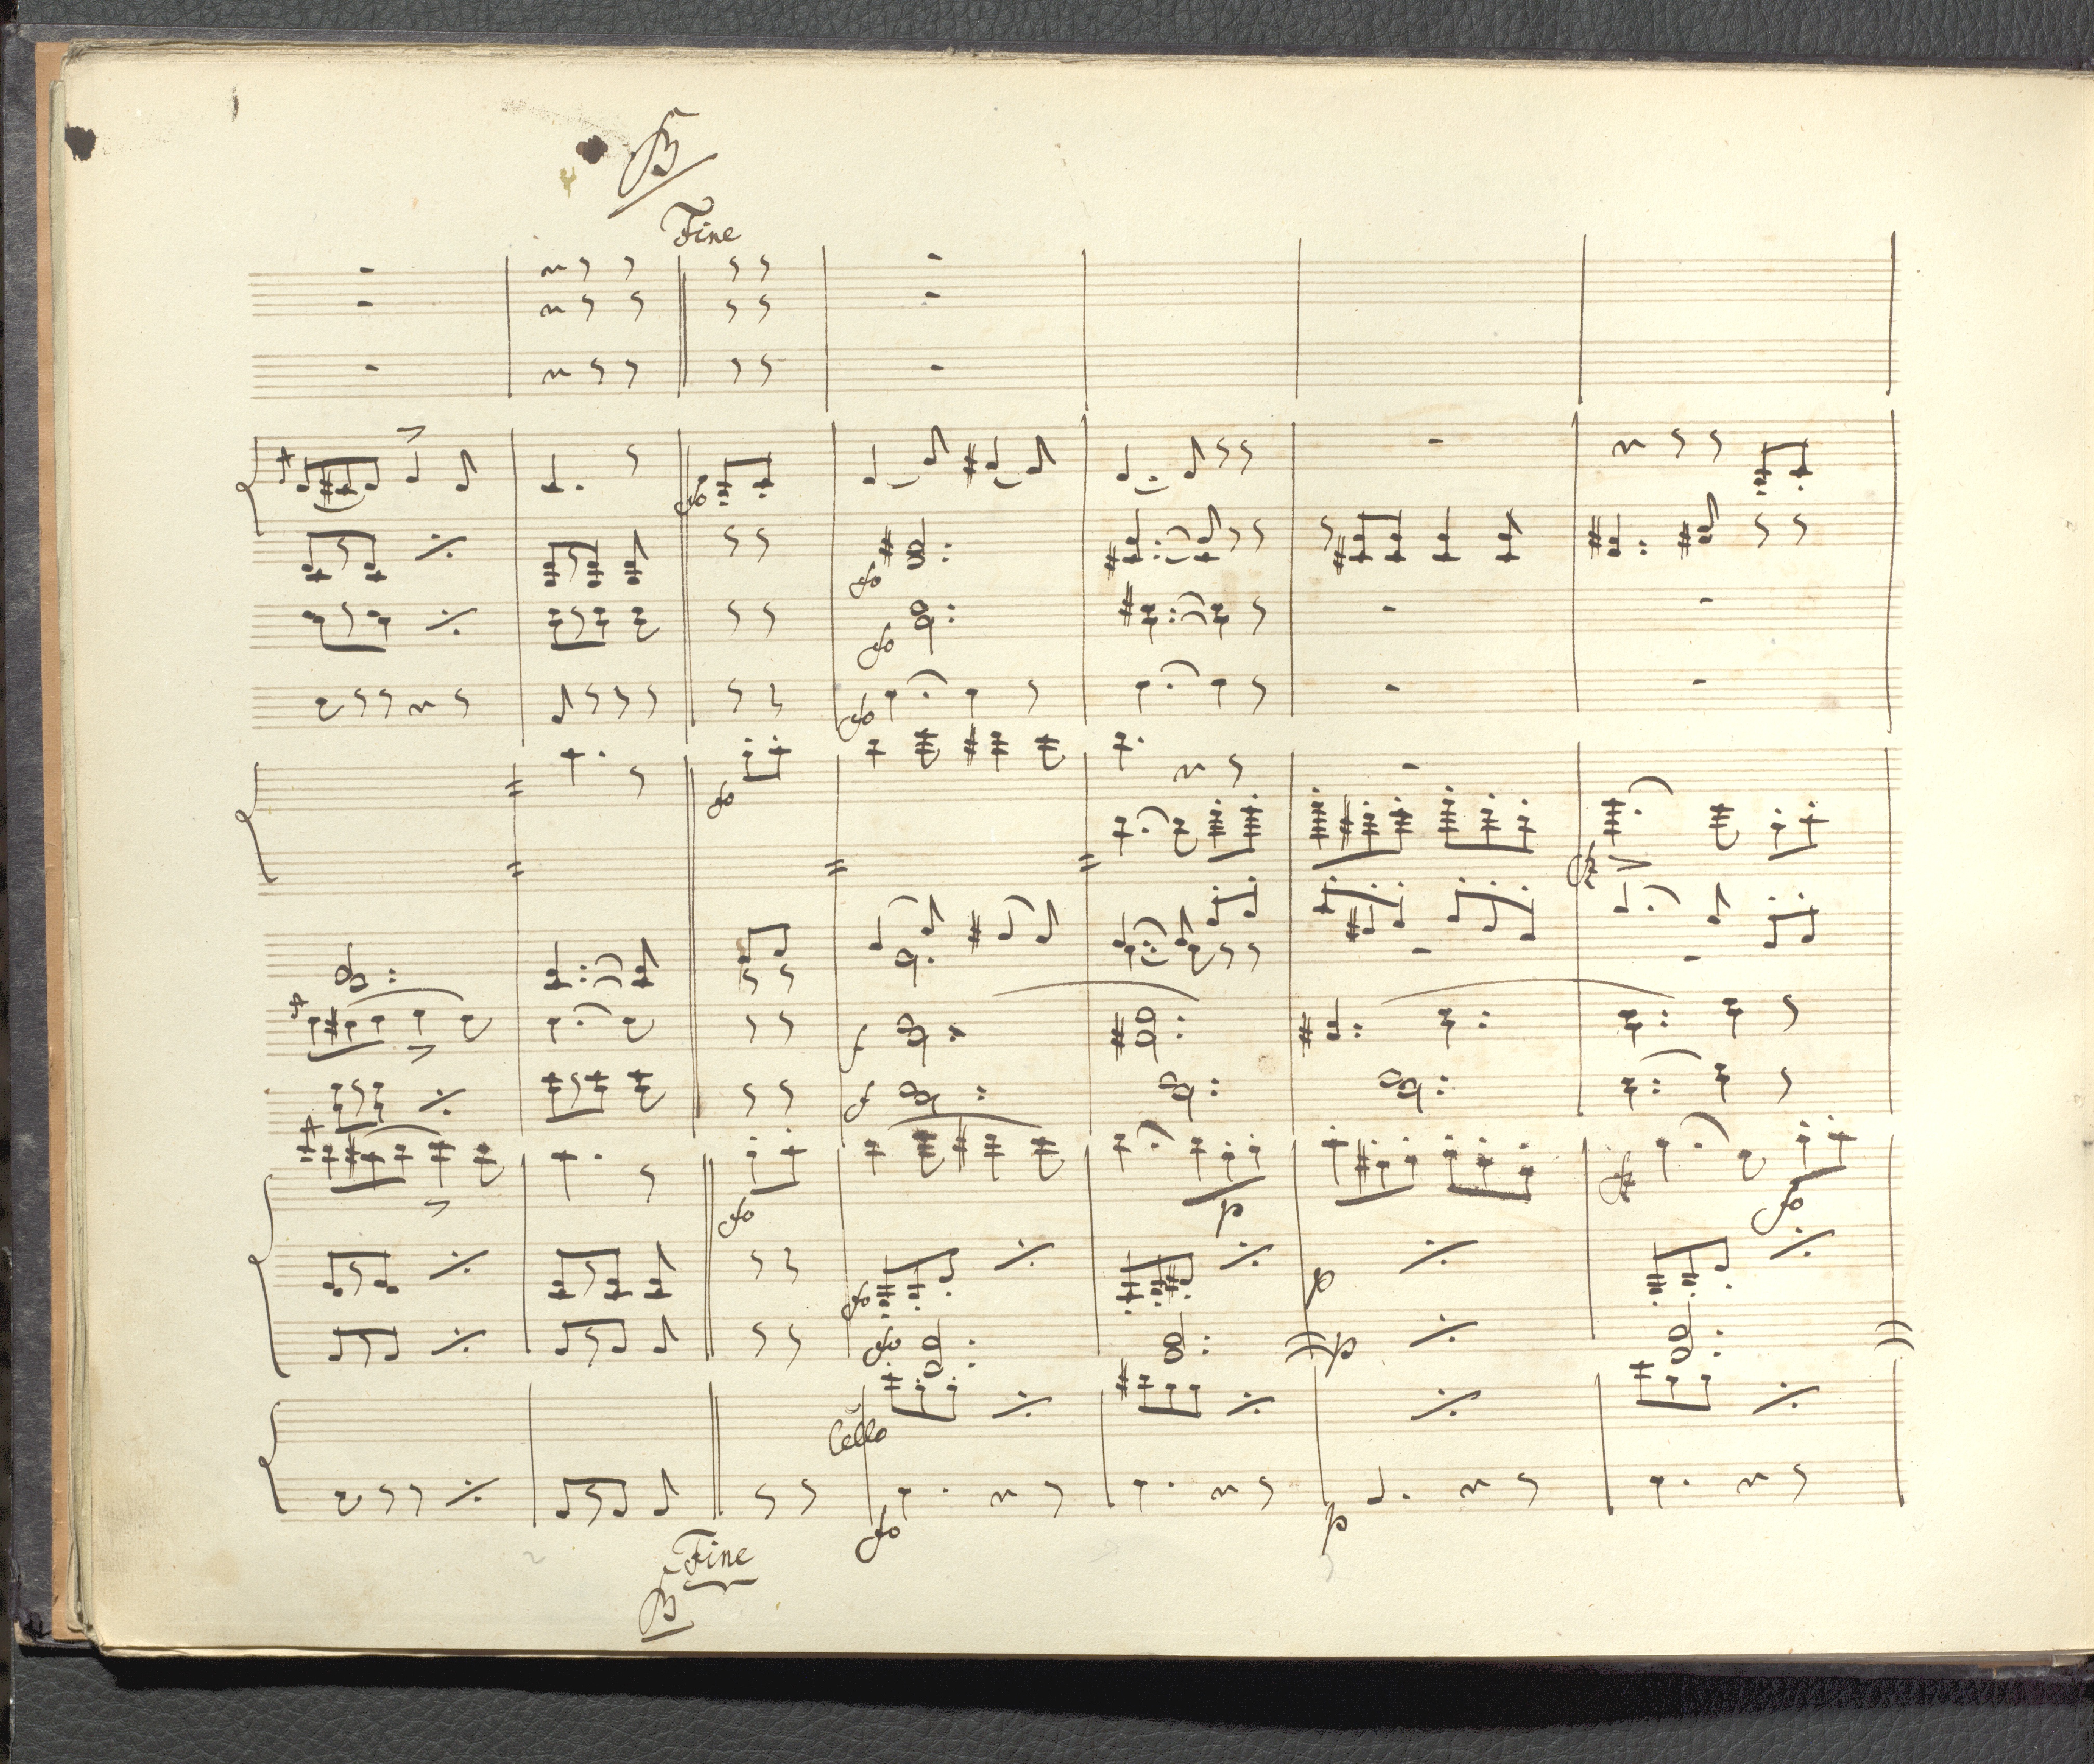 B
Fine
fo
fo
fo
fo
fo
fz
f
f
fo
p
fz
fo
fo
p
fo
p
Cello
fo
p
Fine
B